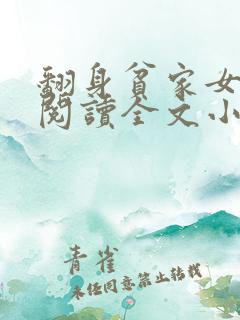 翻身貧家女
閱讀全文小
青雀
未经同意禁止转载